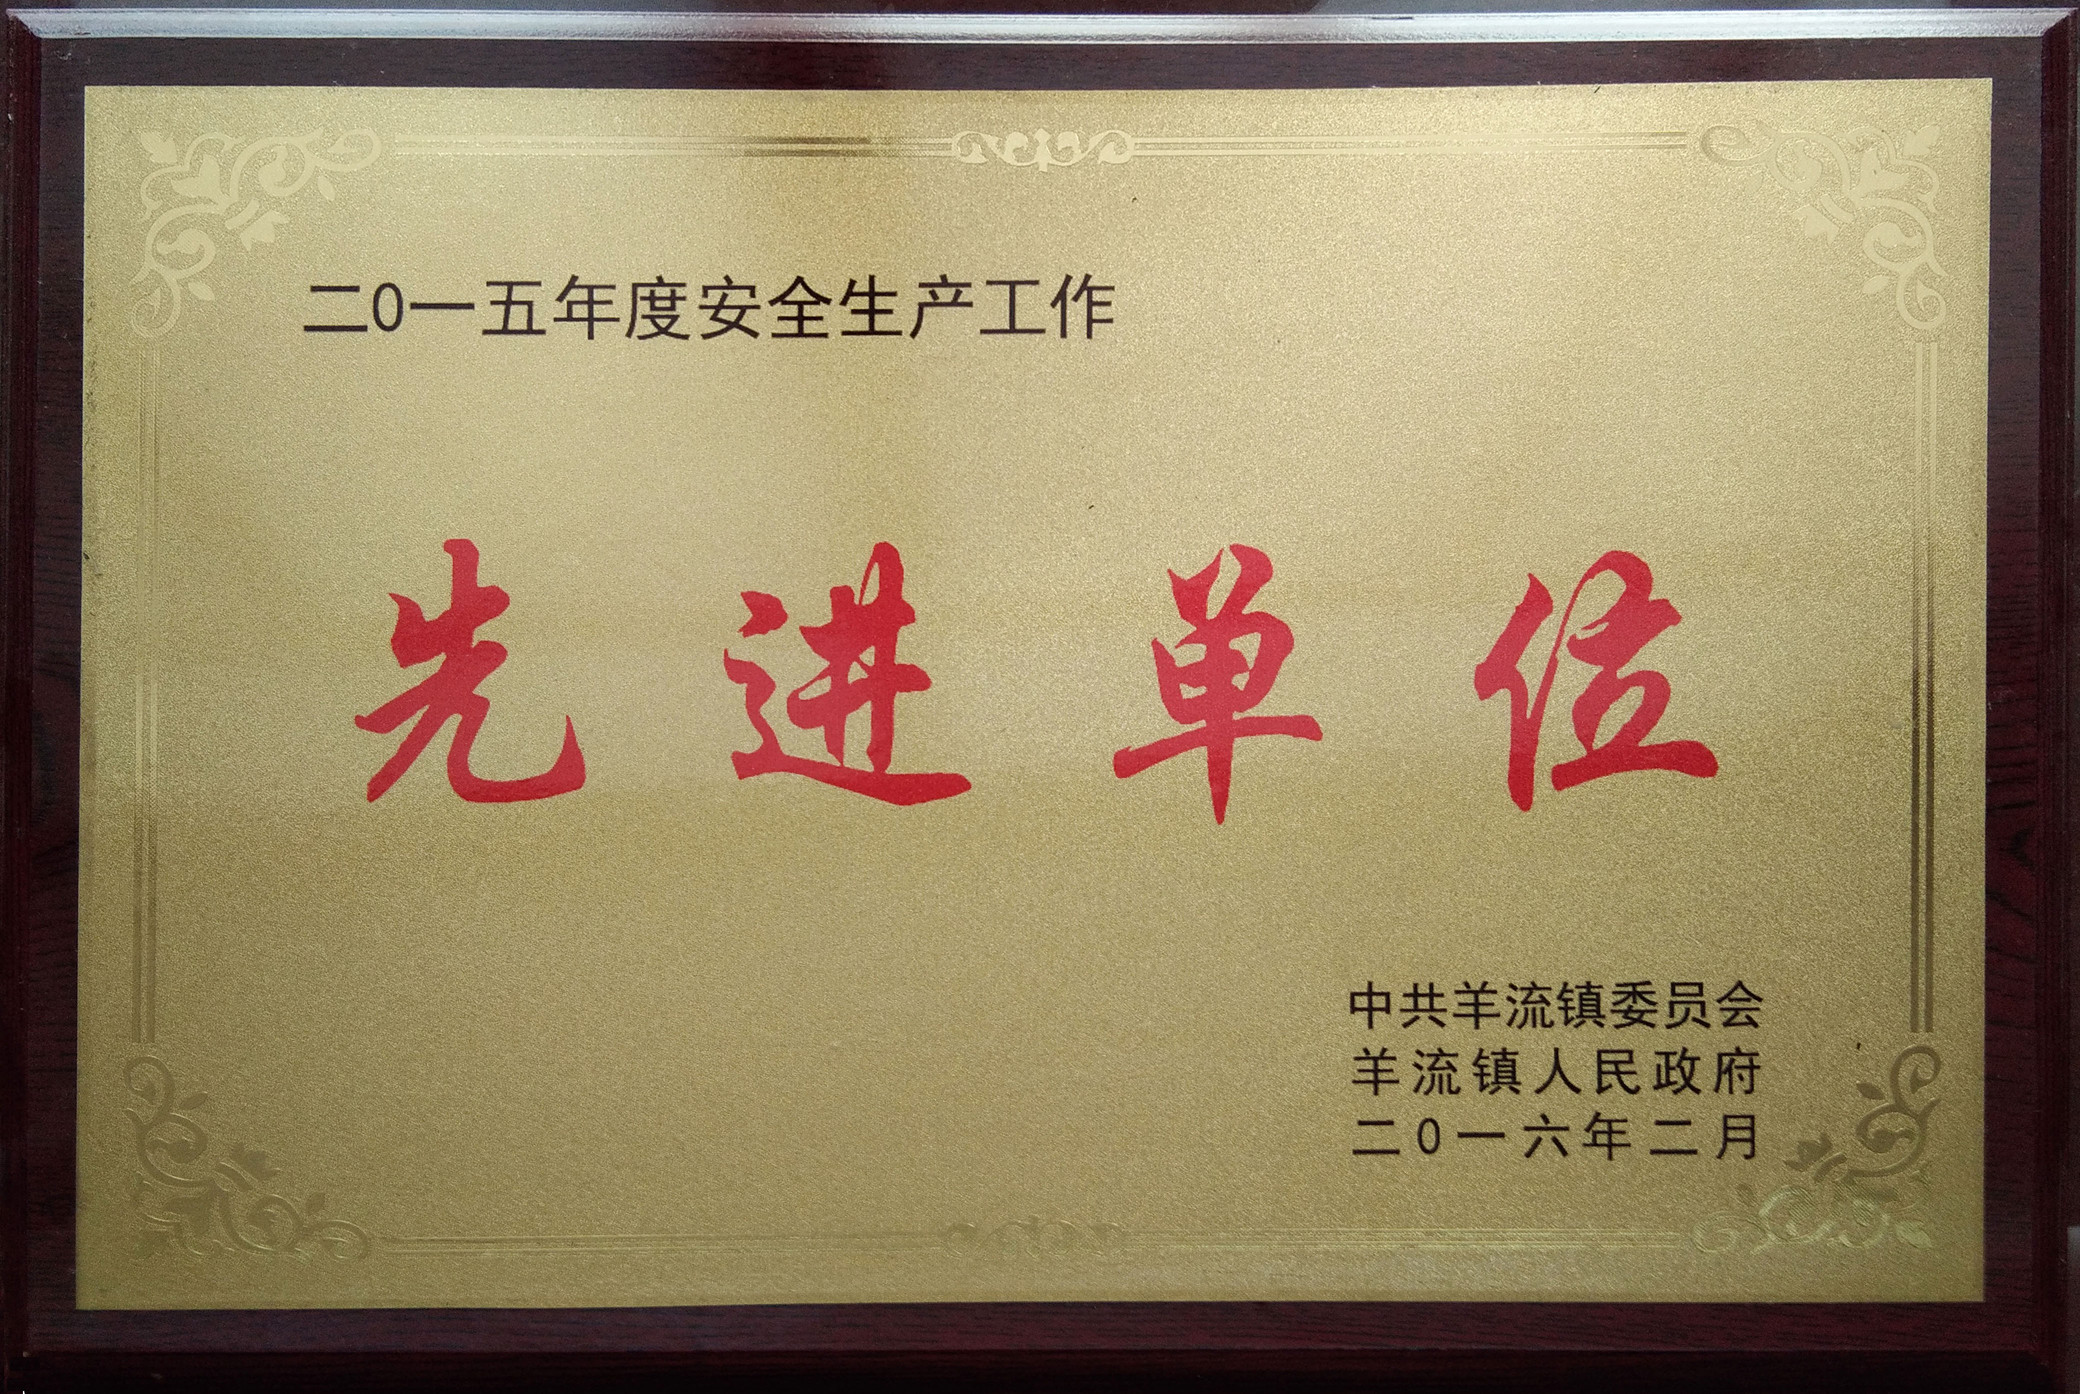 二0一五年度安全生产工作
先进单位
中共羊流镇委员会
羊流镇人民政府
二0一六年二月